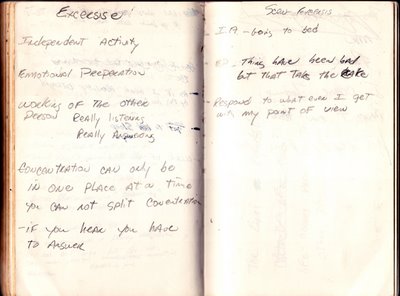 Excersise
Independent Activity
Emotional Preperation
working of the other
Person Really listening
Really Answering
Concentration can only be
in one place at a time
you can not split concentration
-if you hear you have
to answer
Scen Exercsis
I.A - going to bed
EP - Things have been bad
but that takes the cake
Respond to what ever I get
with my point of view